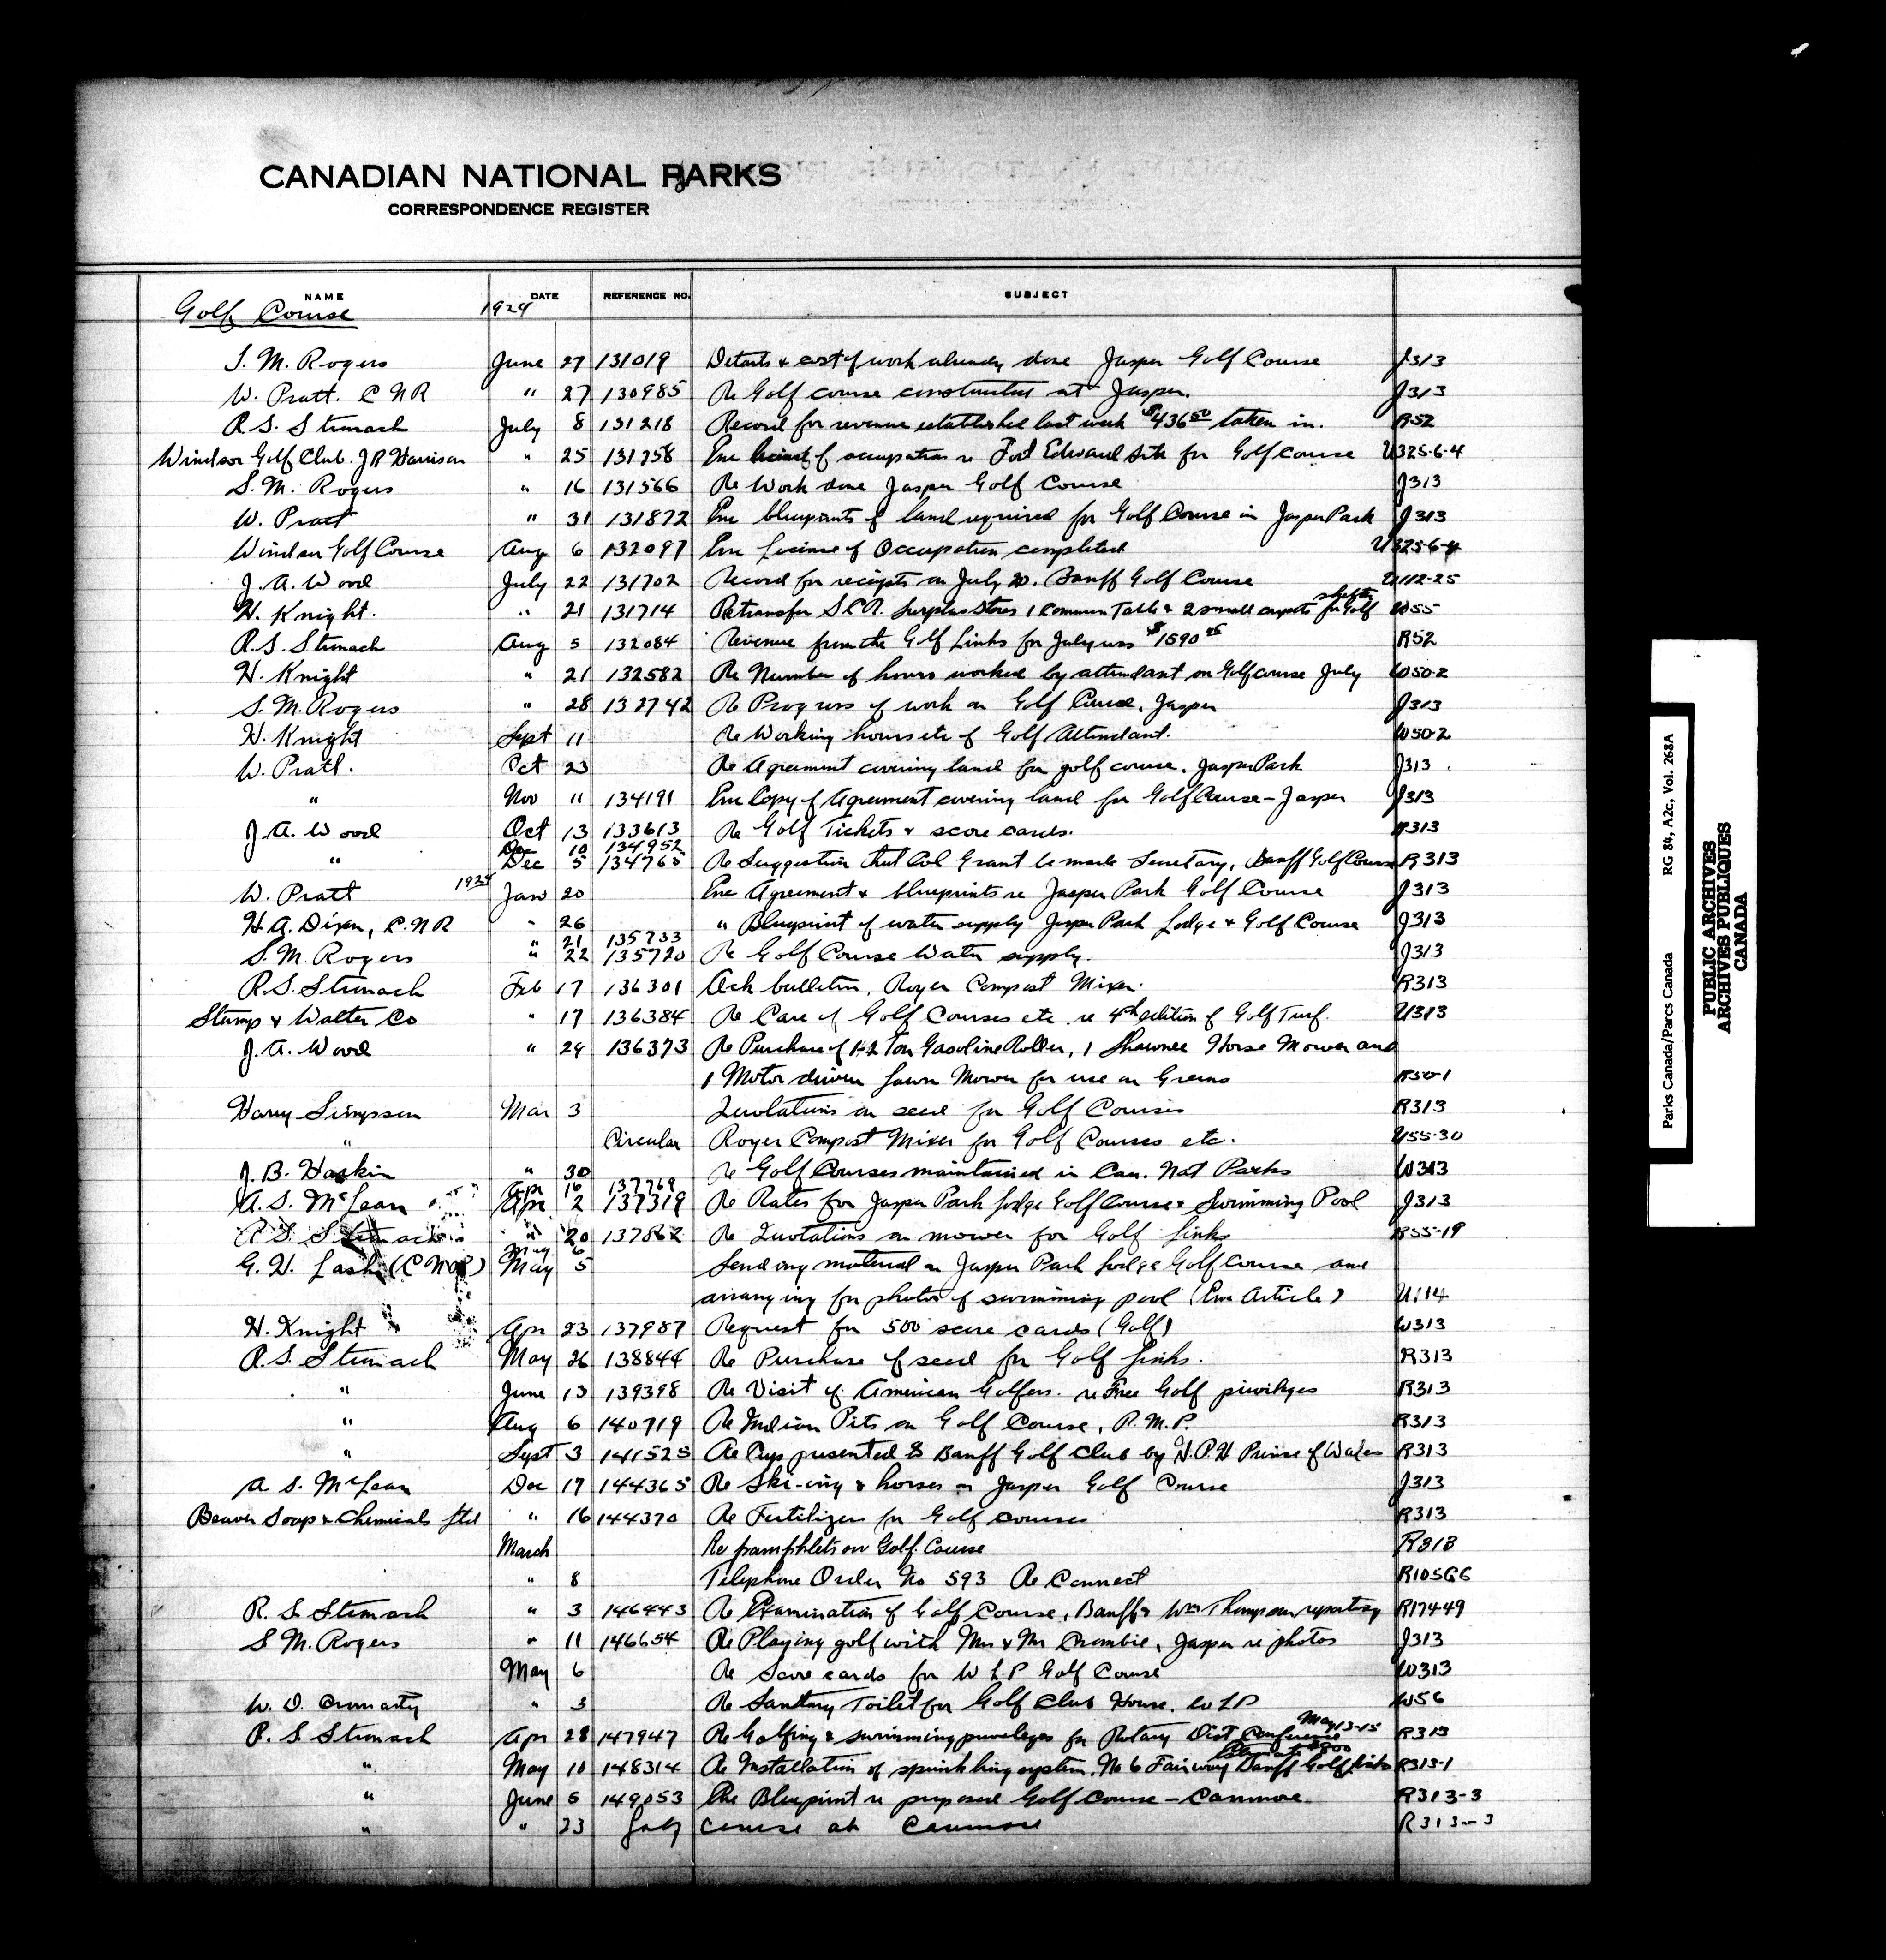 CANADIAN NATIONAL PARKS
CORRESPONDENCE REGISTER
NAME DATE REFERENCE NO. SUBJECT
Golf Course 1924
S. M. Rogers June 27 131019 Details & cost of work already done Jasper Golf Course J313
W. Pratt. C N R " 27 130985 Re Golf course construction at Jasper. J313
R. S. Stronach July 8 131218 Record for revenue established last week $436 50 taken in. R52
Windsor Golf Club. J R Harrison " 25 131758 Enc license of occupation re Fort Edward site for Golf course U325-6-4
S. M. Rogers " 16 131566 Re Work done Jasper Golf Course J313
W. Pratt " 31 131872 Enc blueprints of land required for Golf Course in Jasper Park J313
Windsor Golf Course Aug 6 132097 Enc License of Occupation completed U325-6-4
J. A. Wood July 22 131702 Record for receipts on July 20. Banff Golf Course U112-25
H. Knight. " 21 131714 Re transfer S.C.R. Surplus Stores 1 Common Table & 2 small carpets for Golf shelter W55
R. S. Stronach Aug 5 132084 Revenue from the Golf Links for July was $1590 R52
H. Knight " 21 132582 Re Number of hours worked by attendant on Golf course July W50-2
S. M. Rogers " 28 132742 Re Progress of work on Golf Course, Jasper J313
H. Knight Sept 11 Re Working hours etc of Golf Attendant. W50-2
W. Pratt. Oct 23 Re Agreement covering land for golf course. Jasper Park J313
" Nov 11 134191 Enc Copy of Agreement covering land for Golf Course - Jasper J313
J. A. Wood Oct 13 133613 Re Golf Tickets & score cards. R313
Dec 10 134952
" Dec 5 134765 Re Suggestion that Col Grant be made Secretary, Banff Golf Course R313
W. Pratt 1925 Jan 20 Enc Agreement & blueprints re Jasper Park Golf Course J313
H. A. Dixon, C.N.R " 26 " Blueprint of water supply Jasper Park Lodge & Golf Course J313
" 21 135733
S. M. Rogers " 22 135720 Re Golf Course Water supply. J313
R. S. Stronach Feb 17 136301 Ack bulletin, Royer Compost Mixer. R313
Stump & Walter Co " 17 136384 Re Care of Golf Courses etc. re 4th edition of Golf Turf. U313
J. A. Wood " 24 136373 Re Purchase of 1-2 Ton Gasoline Roller, 1 Shawnee Horse Mower and
1 Motor driven Lawn Mower for use on Greens R50-1
Harry Simpson Mar 3 Quotations on seed for Golf Courses R313
" Circular Royer Compost Mixer for Golf Courses etc. U55-30
J. B. Harkin " 30 Re Golf Courses maintained in Can. Nat Parks W313
Apr 16 137769
A. S. McLean Apr 2 137319 Re Rates for Jasper Park Lodge Golf Course & Swimming Pool J313
R. S. Stronach " 20 137862 Re Quotations on mower for Golf Links R55-19
May 6
G. H. Lash (C N R) May 5 Sending material on Jasper Park Lodge Golf Course and
arranging for photos of swimming pool (Enc Article) U114
H. Knight Apr 23 137987 Request for 500 score cards (Golf) W313
R. S. Stronach May 26 138844 Re Purchase of seed for Golf Links. R313
" June 13 139398 Re Visit of American Golfers. re Free Golf privileges R313
" Aug 6 140719 Re Indian Pits on Golf Course, R.M.P. R313
" Sept 3 141525 Re Cups presented to Banff Golf Club by H.R.H Prince of Wales R313
A. S. McLean Dec 17 144365 Re Ski-ing & horses on Jasper Golf Course J313
Beaver Soap & Chemicals Ltd " 16 144370 Re Fertilizers for Golf courses R313
March Re pamphlets on Golf Course R313
" 8 Telephone Order No 593 Re Connect R105G6
R. S. Stronach " 3 146443 Re Examination of Golf Course, Banff & Wm Thompson reporting R17449
S M. Rogers " 11 146654 Re Playing golf with Mrs & Mr Crombie, Jasper re photos J313
May 6 Re Score cards for W L P Golf Course W313
W. D. Cromarty " 3 Re Sanitary Toilet for Golf Club House. W L P W56
R. S Stronach Apr 28 147947 Re Golfing & swimming privileges for Rotary Dist Conference May 13-15 R313
" May 10 148314 Re Installation of sprinkling system, No 6 Fairway Banff Golf Links R313-1
" June 5 149053 Enc Blueprint re proposed Golf Course - Canmore R313-3
" " 23 Golf course at Canmore R313-3
Parks Canada/Parcs Canada RG 84, A2c, Vol. 268A
PUBLIC ARCHIVES
ARCHIVES PUBLIQUES
CANADA